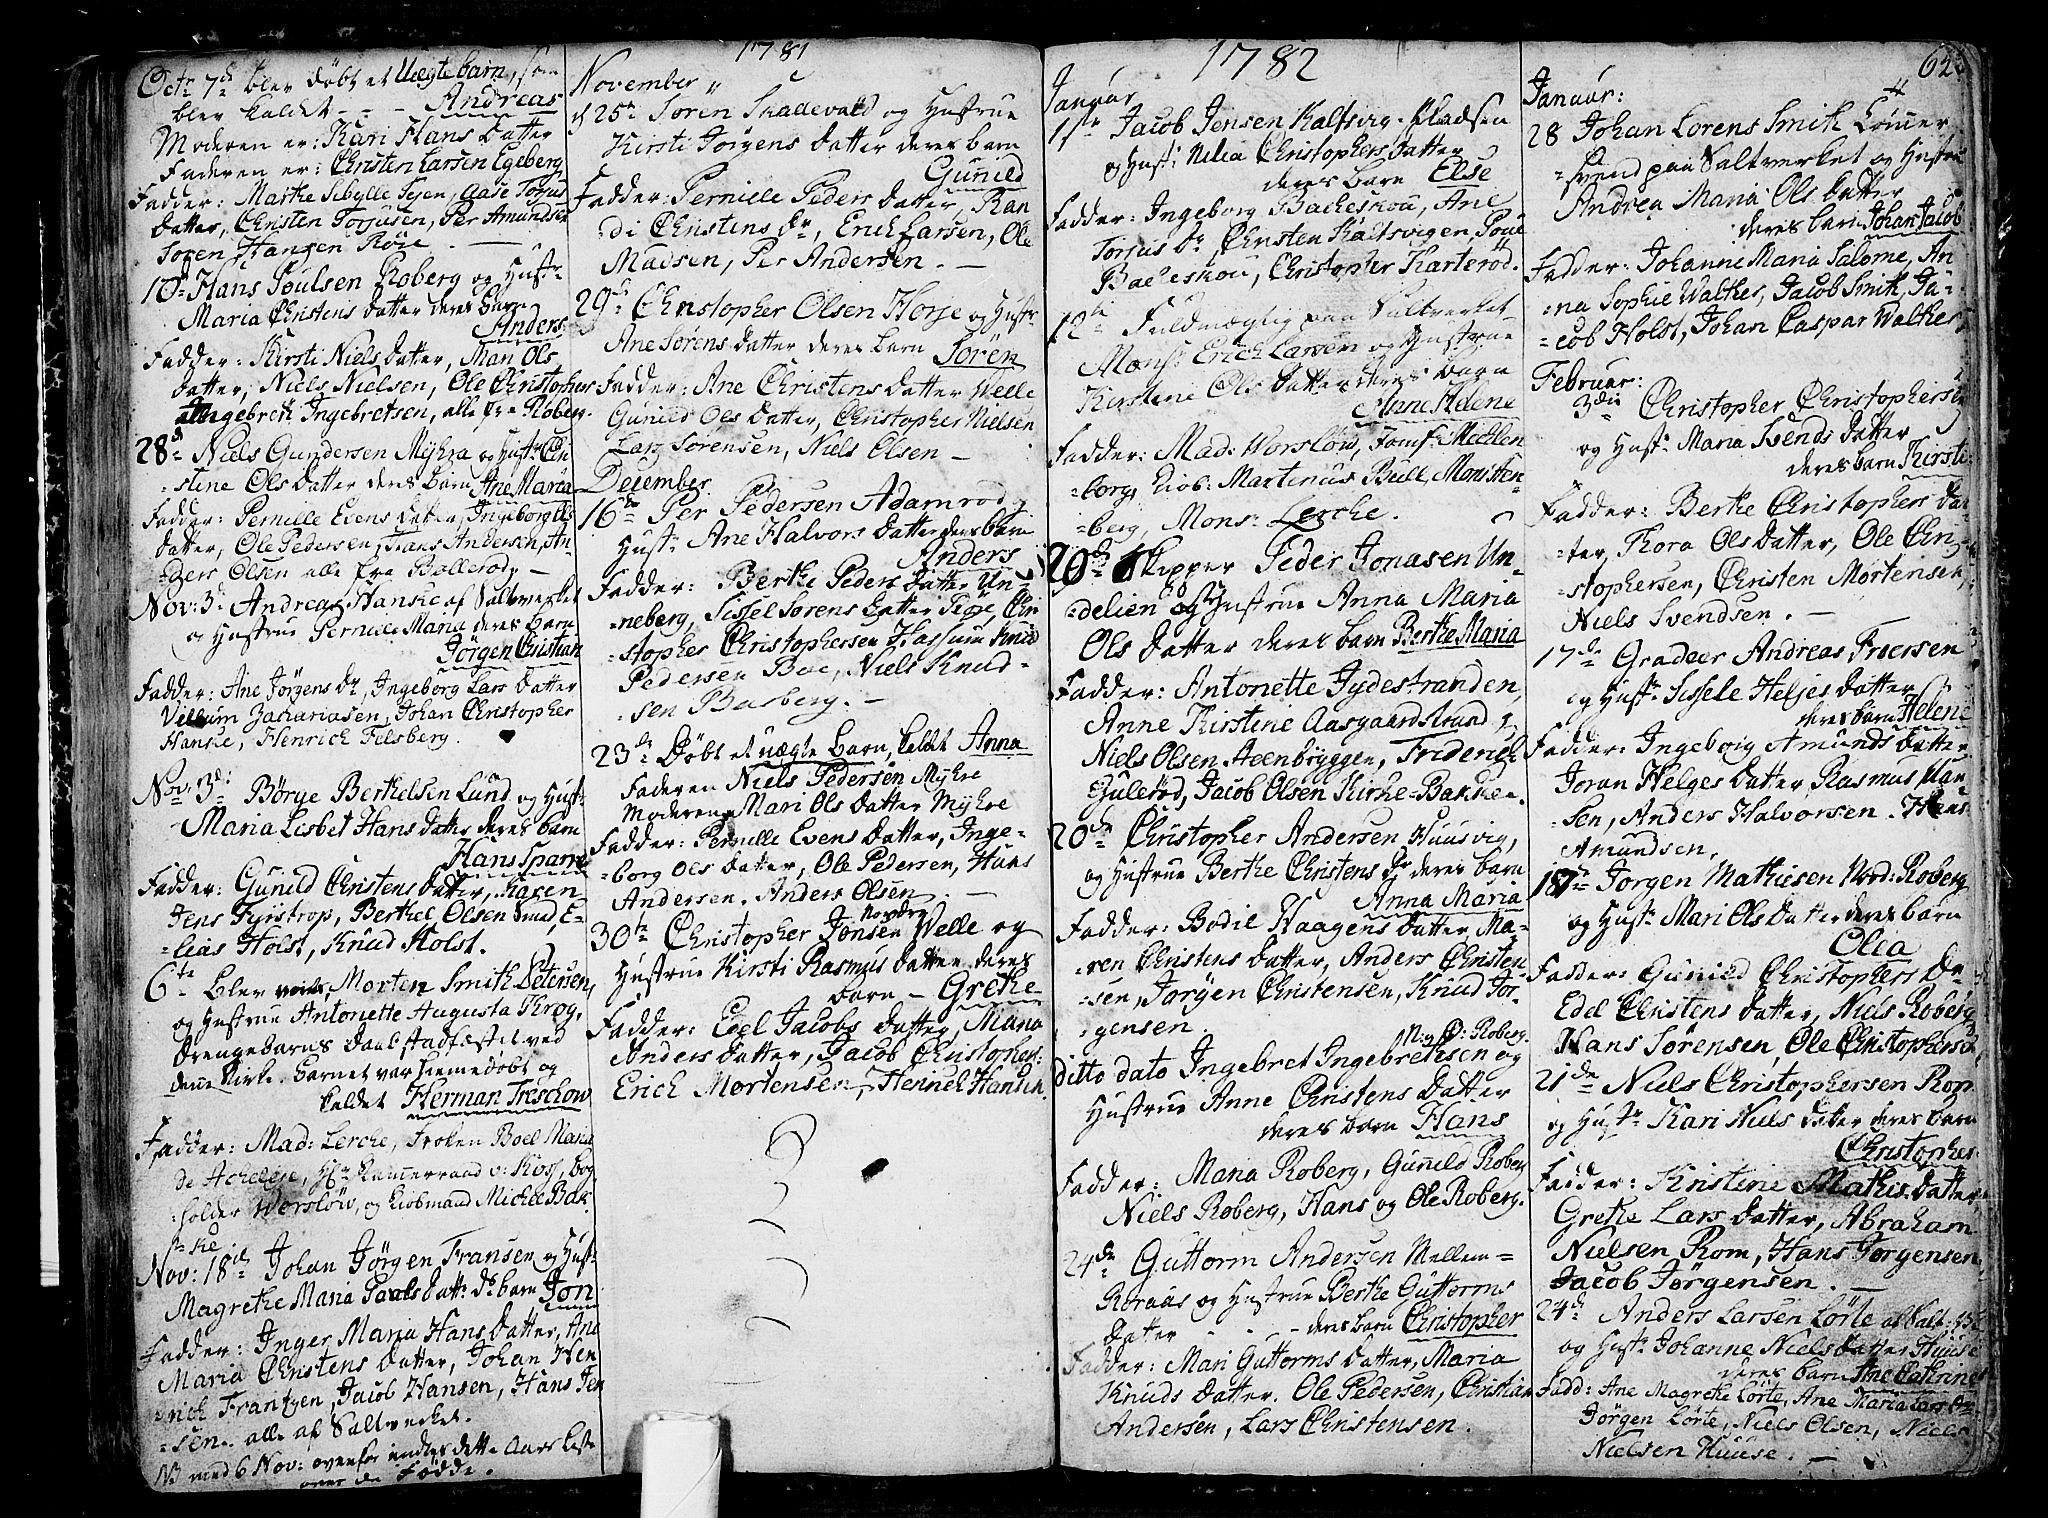 Octr 7de blev døbt et Uægte barn, som
blev kaldet - - - Andreas
Moderen er: Kari Hans Datter
Faderen er: Christen Larsen Egeberg
Fadder: Marthe Sibylle Sejen, Aase Torjus
Datter, Christen Torjusen, Per Amundsen
Søren Hansen Røre. —
10de Hans Poulsen Roberg og Hustr.
Maria Christens Datter deres barn
Anders
Fadder: Kirsti Niels Datter, Mari Ols
Datter, Niels Nielsen, Ole Christophers
Ingebreth Ingebretsen, alle fra Roberg.
28de Niels Gundersen Myhra og Hustr. Chri
-stine Ols Datter deres barn Ane Maria
Fadder: Pernille Evens Datter, Ingeborg Ols
Datter, Ole Pedersen, Hans Andersen, An-
ders Olsen alle fra Bollerød, —
Nov: 3de Andreas Hanske af Saltverket
og Hustrue Pernille Maria deres barn
Jörgen Christian
Fadder: Ane Jørgens Dr, Ingeborg Lars Datter
Villum Zachariasen, Johan Christopher
Hanske, Henrich Felsberg.
Nov: 3de: Børge Berthelsen Lund og Hust:
Maria Lisbet Hans Datter deres barn
Hans Sparre
Fadder: Gunild Christens Datter, Karen
Jens Fyistrop, Berthel Olsen Smid, E-
-lias Holst, Knud Holst.
6te Blev Morten Smith Petersen,
og Hustrue Antonette Augusta Throg,
Drengebarns Daab stadfæstet ved
denne Kirke. barnet var hiemedøbt og
kaldet Herman Treschow
Fadder: Mad: Lerche, Froken Boel Maria
de Acheleye, Hr Kammerraad v: Koss, bog
-holder Worsløw, og Kiøbmand Michel Bas
Nov: 18de Johan Jørgen Fransen og Hust:
Magrethe Maria Pauls Datt: Ds barn Jon
Fadder: Inger Maria Hans Datter, Ane
Maria Christens Datter, Johan Hen
-rich Frantzen, Jacob Hansen, Hans Jen
-sen. alle af Saltverket.
NB med 6 Nov: ovenfor endtes dette Aars liste
over de Fødde.
1781
November
d 25de Søren Skallevald og Hustrue
Kirsti Jørgens Datter deres barn
Gunild
Fadder: Pernille Peders Datter, Ran
-di Christens Dr, Erich Larsen, Ole
Madsen, Per Andersen. —
29de Christopher Olsen Horje og Hustr.
Ane Sørens Datter deres barn Søren
Fadder: Ane Christens Datter Welle
Gunild Ols Datter, Christopher Nielsen
Lars Sørensen, Niels Olsen —
December
16de Per Pedersen Adamrød og
Hustr Ane Halvors Datter deres barn
Anders
Fadder: Berthe Peders Datter Un-
-neberg, Sissel Sørens Datter Teje, Chri
-stopher Christophersen Hassum Knud
Pedersen Boe, Niels Knud-
-sen Basberg. —
23de Døbt et uægte barn, kaldt Anna
Faderen Niels Pedersen Myhre
Moderen Mari Ols Datter Myhre
Fadder: Pernille Evens Datter, Inge-
-borg Ols Datter, Ole Pedersen, Hans
Andersen. Anders Olsen. —
Nordre
30te Christopher Jensen Welle og
Hustrue Kirsti Rasmus Datter deres
barn - Grethe
Fadder: Edel Jacobs Datter, Maria
Anders Datter, Jacob Christophers:
Erich Mortensen, Henrich Hansen.
1782
Januar
1ste Jacob Jensen Kaltsvig-Pladsen
og Hust: Nilia Christophers Datter
deres barn Else
Fadder: Ingeborg Bacheskou, Ane
Torjus Dr Christen Kaltsvigen, Poul
Bacheskou, Christopher Karterød.
12te Fuldmægtig paa Saltverket
Mons: Erich Larsen og Hustrue
Kirstine Ols Datter deres barn
Anne Helene
Fadder: Mad: Worsløw, Jomf: Mecklen
-borg, Kiøb: Martinus Bull, Mons Sten-
-berg, Mons: Lerche.
20de Skipper Peder Jonasen Un-
-delien og Hustrue Anna Maria
Ols Datter deres barn Berthe Maria
Fadder: Antonette Jydestranden,
Anne Kirstine Aasgaardstrand,
Niels Olsen Steenbryggen, Friderich
Gulerød, Jacob Olsen Kirke-Bakken.
20de Christopher Andersen Huusvig,
og Hustrue Berthe Christens Dr deres barn
Anna Maria
Fadder: Bodil Haagens Datter, Ma-
-ren Christens Datter, Anders Christen
-sen, Jørgen Christensen, Knud Jør-
-gensen.
N: Roberg.
ditto dato Ingebret Ingebretsen og
Hustrue Anne Christens Datter
deres barn Hans
Fadder: Maria Roberg, Gunild Roberg
Niels Roberg, Hans og Ole Roberg.
24de Guttorm Andersen Mellem-
Roraas og Hustrue Berthe Guttorms
Datter - - - deres barn Christopher
Fadder: Mari Guttorms Datter, Maria
Knuds Datter. Ole Pedersen, Christian
Andersen, Lars Christensen.
62
Januar:
28 Johan Lorens Smith Tømmer
-svend paa Saltverket og Hustr:
Andrea Maria Ols Datter
deres barn Johan Jacob
Fadder: Johanne Maria Salome, An
-na Sophie Walther, Jacob Smith, Ja-
-cob Holst, Johan Caspar Walther
Februar:
3die Christopher Christophersen
og Hust: Maria Svends Datter
deres barn Kirsti
Fadder: Berthe Christophers Dat-
-ter, Thora Ols Datter, Ole Chri-
stophersen, Christen Mortensen,
Niels Svendsen. —
17de Gradeer Andreas Friersen
og Hustr Sissele Heljes Datter
deres barn Helene
Fadder: Ingeborg Amunds Datter
Joran Helges Datter Rasmus Han
-sen, Anders Halvorsen. Hans
Amundsen.
18de Jørgen Mathiesen Nord: Roberg
og Hustr Mari Ols Datter deres barn
Olia
Fadder: Gunild Christophers Dr
Edel Christens Datter, Niels Roberg
Hans Sørensen, Ole Christophers
21de Niels Christophersen Rom
og Hustr Kari Niels Datter deres barn
Christopher
Fadder: Kristine Mathis Datter,
Grethe Lars Datter, Abraham
Nielsen Rom, Hans Jørgensen
Jacob Jørgensen. —
24de Anders Larsen Lørte af Salt:
og Hustr Johanne Niels Datter Huuse
deres barn Ane Cathrine
Fadd: Ane Magrethe Lørte, Ane Maria Lars Dr
Jørgen Lørte, Niels Olsen, Niels
Nielsen Huuse. —